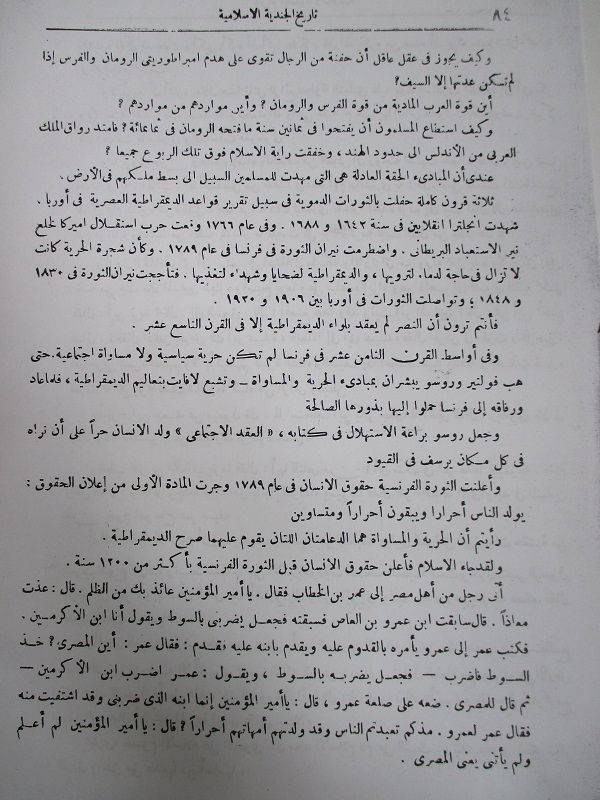 ٨٤
تاريخ الجندية الاسلامية
وكيف يجوز فى عقل عاقل أن حفنة من الرجال تقوى على هدم امبراطوريتى الرومان والفرس إذا
لم تسكن عدتها إلا السيف؟
أين قوة العرب المادية من قوة الفرس والرومان ؟ وأين مواردهم من مواردهم ؟
وكيف استطاع المسلمون أن يفتحوا فى ثمانين سنة ما فتحه الرومان فى ثمانمائة ؟ فامتد رواق الملك
العربى من الأندلس الى حدود الهند ، وخفقت راية الاسلام فوق تلك الربوع جميعا ؟
عندى أن المبادىء الحقة العادلة هى التى مهدت للمسلمين السبيل الى بسط ملكهم فى الأرض .
ثلاثة قرون كاملة حفلت بالثورات الدموية فى سبيل تقرير قواعد الديمقراطية العصرية فى أوربا .
شهدت انجلترا انقلابين فى سنة ١٦٤٢ و ١٦٨٨ . وفى عام ١٧٦٦ وقعت حرب استقلال اميركا لخلع
نير الاستعباد البريطانى . واضطرمت نيران الثورة فى فرنسا فى عام ١٧٨٩ . وكأن شجرة الحرية كانت
لا تزال فى حاجة لدماء لترويها ، والديمقراطية لضحايا وشهداء لتغذيها . فتأججت نيران الثورة فى ١٨٣٠
و ١٨٤٨ ؛ وتواصلت الثورات فى أوربا بين ١٩٠٦ و ١٩٢٠ .
فأنتم ترون أن النصر لم يعقد بلواء الديمقراطية إلا فى القرن التاسع عشر .
وفى أواسط القرن الثامن عشر فى فرنسا لم تكن حرية سياسية ولا مساواة اجتماعية. حتى
هب فولتير وروسو يبشران بمبادىء الحرية والمساواة – وتشبع لافايت بتعاليم الديمقراطية ، فلما عاد
ورفاقه إلى فرنسا حملوا إليها بذورها الصالحة
وجعل روسو براعة الاستهلال فى كتابه ، « العقد الاجتماعى » ولد الانسان حراً على أن نراه
فى كل مكان يرسف فى القيود
وأعلنت الثورة الفرنسية حقوق الانسان فى عام ١٧٨٩ وجرت المادة الأولى من إعلان الحقوق :
يولد الناس أحرارا ويبقون أحراراً ومتساوين
رأيتم أن الحرية والمساواة هما الدعامتان اللتان يقوم عليهما صرح الديمقراطية .
ولقد جاء الاسلام فأعلن حقوق الانسان قبل الثورة الفرنسية بأكثر من ١٢٠٠ سنة .
أتى رجل من أهل مصر إلى عمر بن الخطاب فقال . يا أمير المؤمنين عائذ بك من الظلم . قال : عذت
معاذاً . قال سابقت ابن عمرو بن العاص فسبقته فجعل يضربنى بالسوط ويقول أنا ابن الأكرمين .
فكتب عمر إلى عمرو يأمره بالقدوم عليه ويقدم بابنه عليه فقدم : فقال عمر : أين المصرى ؟ خذ
السوط فاضرب – فجعل يضربه بالسوط ، ويقول : عمر اضرب ابن الأكرمين –
ثم قال للمصرى . ضعه على صلعة عمرو ، قال : يا أمير المؤمنين إنما ابنه الذى ضربنى وقد اشتفيت منه
فقال عمر لعمرو . مذكم تعبدتم الناس وقد ولدتهم أمهاتهم أحراراً ؟ قال : يا أمير المؤمنين لم أعلم
ولم يأتنى يعنى المصرى .